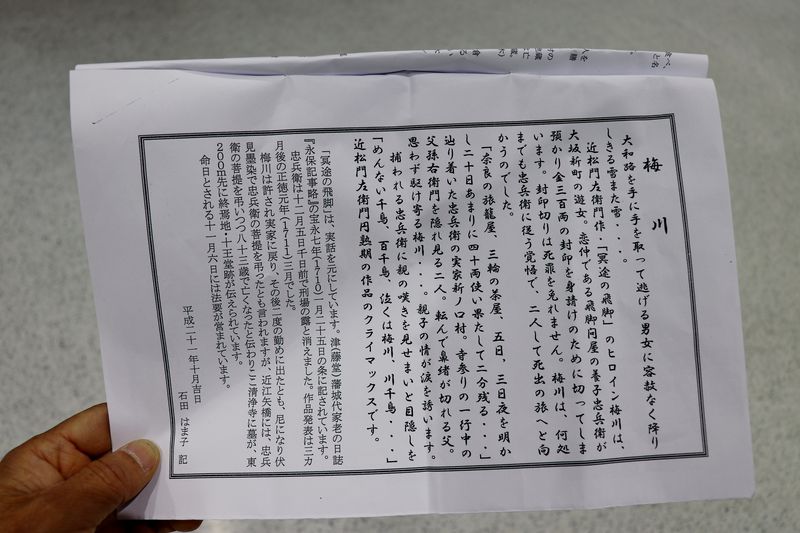 梅川
大和路を手に手を取って逃げる男女に容赦なく降り
しきる雪また雪・・・。
近松門左衛門作・「冥途の飛脚」のヒロイン梅川は、
大坂新町の遊女。恋仲である飛脚問屋の養子忠兵衛が
預かり金三百両の封印を身請けのために切ってしま
います。封印切りは死罪を免れません。梅川は、何処
までも忠兵衛に従う覚悟で、二人して死出の旅へと向
かうのでした。
「奈良の旅籠屋、三輪の茶屋、五日、三日夜を明か
し二十日あまりに四十両使い果たして二分残る・・・」
辿り着いた忠兵衛の実家新ノ口村。寺参りの一行中の
父孫右衛門を隠れ見る二人。転んで鼻緒が切れる父。
思わず駆け寄る梅川・・・。親子の情が涙を誘います。
捕われる忠兵衛に親の嘆きを見せまいと目隠しを
「めんない千鳥、百千鳥、泣くは梅川、川千鳥・・・」
近松門左衛門円熟期の作品のクライマックスです。
「冥途の飛脚」は、実話を元にしています。津(藤堂)藩城代家老の日誌
『永保記事略』の宝永七年(1710)一月二十五日の条に記されています。
忠兵衛は十二月五日千日前で刑場の露と消えました。作品発表は三カ
月後の正徳元年(1711)三月でした。
梅川は許され実家に戻り、その後二度の勤めに出たとも、尼になり伏
見墨染で忠兵衛の菩提を弔ったとも言われますが、近江矢橋には、忠兵
衛の菩提を弔いつつ八十三歳で亡くなったと伝わりここ清浄寺に墓が、東
200m先に終焉地・十王堂跡が伝えられています。
命日とされる十一月六日には法要が営まれています。
平成二十一年十月吉日
石田 はま子 記